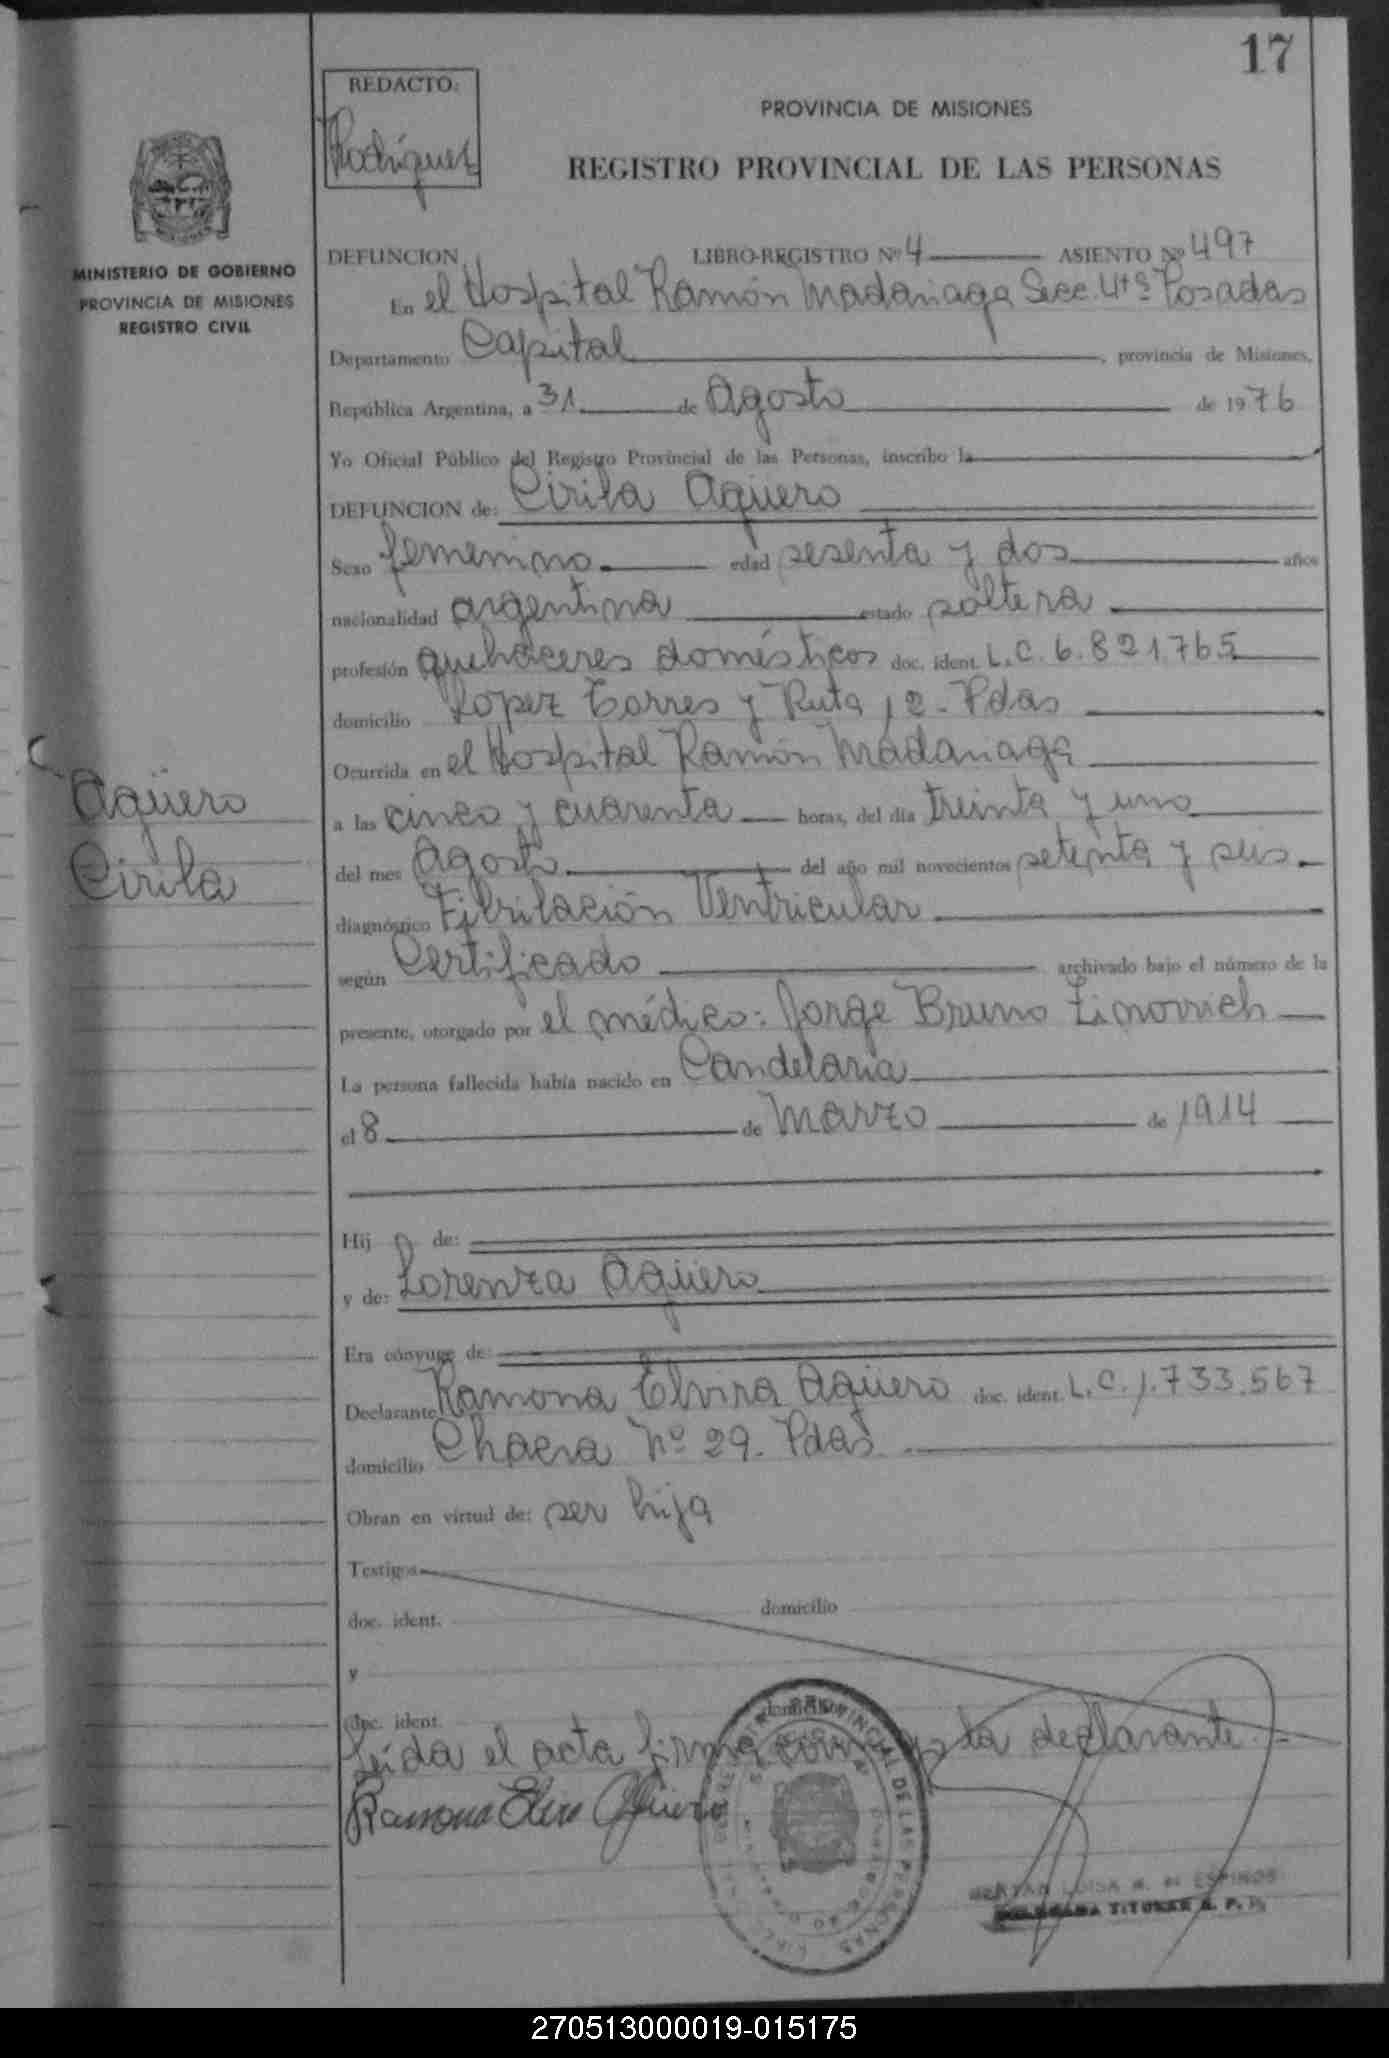 17
REDACTO:
Rodriguez
PROVINCIA DE MISIONES
REGISTRO PROVINCIAL DE LAS PERSONAS
MINISTERIO DE GOBIERNO
PROVINCIA DE MISIONES
REGISTRO CIVIL
DEFUNCION LIBRO-REGISTRO Nº 4 ASIENTO Nº 497
En el Hospital Ramón Madariaga Secc. 4tª Posadas
Departamento Capital, provincia de Misiones,
República Argentina, a 31 de Agosto de 1976
Yo Oficial Público del Registro Provincial de las Personas, inscribo la
DEFUNCION de: Cirila Agüero
Sexo femenino edad sesenta y dos años
nacionalidad argentina estado soltera
profesión quehaceres domésticos doc. ident. L.C. 6.821.765
domicilio Lopez Torres y Ruta 12 - Pdas
Ocurrida en el Hospital Ramón Madariaga
a las cinco y cuarenta horas, del día treinta y uno
del mes Agosto del año mil novecientos setenta y seis
diagnóstico Fibrilación Ventricular
según Certificado archivado bajo el número de la
presente, otorgado por el médico: Jorge Bruno Zimovich
La persona fallecida había nacido en Candelaria
el 8 de Marzo de 1914
Agüero
Cirila
Hij a de:
y de: Lorenza Agüero
Era cónyuge de:
Declarante Ramona Elvira Agüero doc. ident. L.C. 1.733.567
domicilio Chacra Nº 29. Pdas
Obran en virtud de: ser hija
Testigos
doc. ident. domicilio
y
doc. ident.
Leída el acta firma conmigo la declarante.
Ramona Elvira Agüero
REGISTRO PROVINCIAL DE LAS PERSONAS
LUISA M. de ESPINOS
DELEGADA TITULAR R. P. P.
270513000019-015175